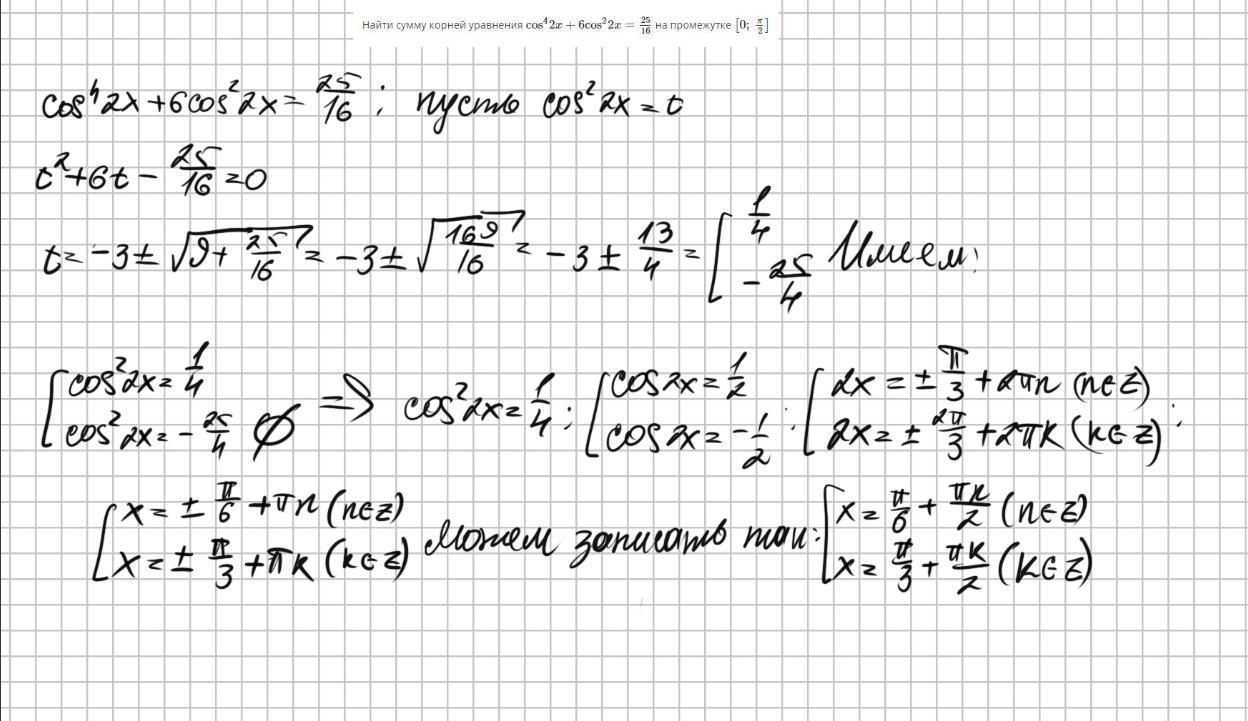 Найти сумму корней уравнения cos⁴2x + 6cos²2x = 25/16 на промежутке [0; π/2]
cos⁴2x + 6cos²2x = 25/16; пусть cos²2x = t
t² + 6t − 25/16 = 0
t = −3 ± √(9 + 25/16) = −3 ± √(169/16) = −3 ± 13/4 = [ 1/4 ; −25/4 Имеем:
[ cos²2x = 1/4 ; cos²2x = −25/4 ∅ => cos²2x = 1/4; [ cos2x = 1/2 ; cos2x = −1/2 ; [ 2x = ± π/3 + 2πn (n∈Z) ; 2x = ± 2π/3 + 2πk (k∈Z) ;
[ x = ± π/6 + πn (n∈Z) ; x = ± π/3 + πk (k∈Z) Можем записать так: [ x = π/6 + πn/2 (n∈Z) ; x = π/3 + πk/2 (k∈Z)